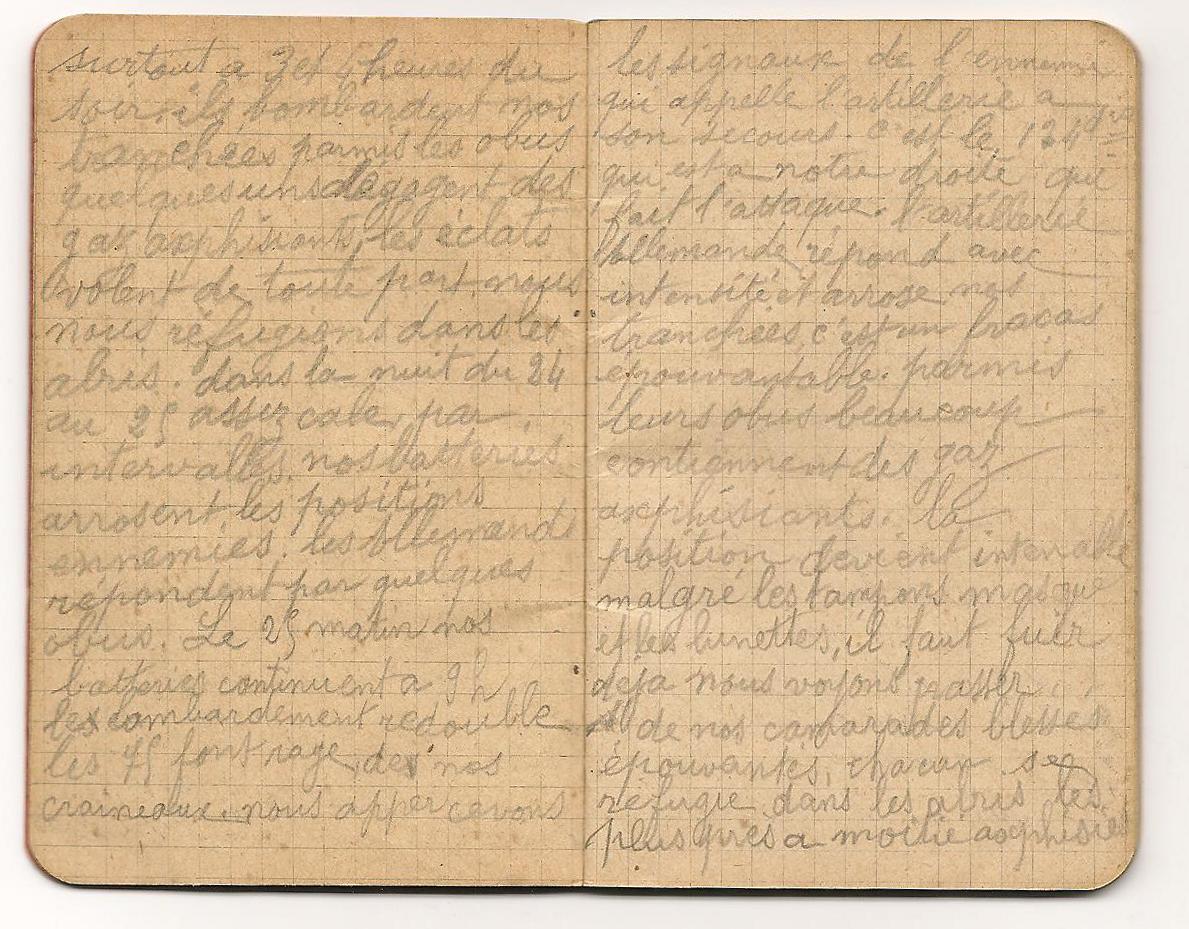 surtout a 3 et 4 heures du
soir, ils bombardent nos
tranchées parmis les obus
quelques uns dégagent des
gaz axphisiants, les éclats
volent de toute part, nous
nous réfugions dans les
abris. dans la nuit du 24
au 25 assez calme, par
intervalles nos batteries
arrosent les positions
ennemies. les Allemands
répondent par quelques
obus. Le 25 matin nos
batteries continuent a 9h
les bombardement redouble
les 75 font rage, des nos
craineaux nous appercevons
les signaux de l'ennemi
qui appelle l'artillerie a
son secours. c'est la 124
qui est a notre droite qui
fait l'attaque. l'artillerie
Allemande répond avec
intensité et arrose nos
tranchées, c'est un fracas
épouvantable. parmis
leurs obus beaucoup
contiennent des gaz
axphisiants. la
position devient intenable
malgré les tampons masque
et les lunettes, il faut fuir
deja nous voyons passer
de nos camarades blessés
épouvantés, chacun se
refugie dans les abris les
plus a moitié axphisiés